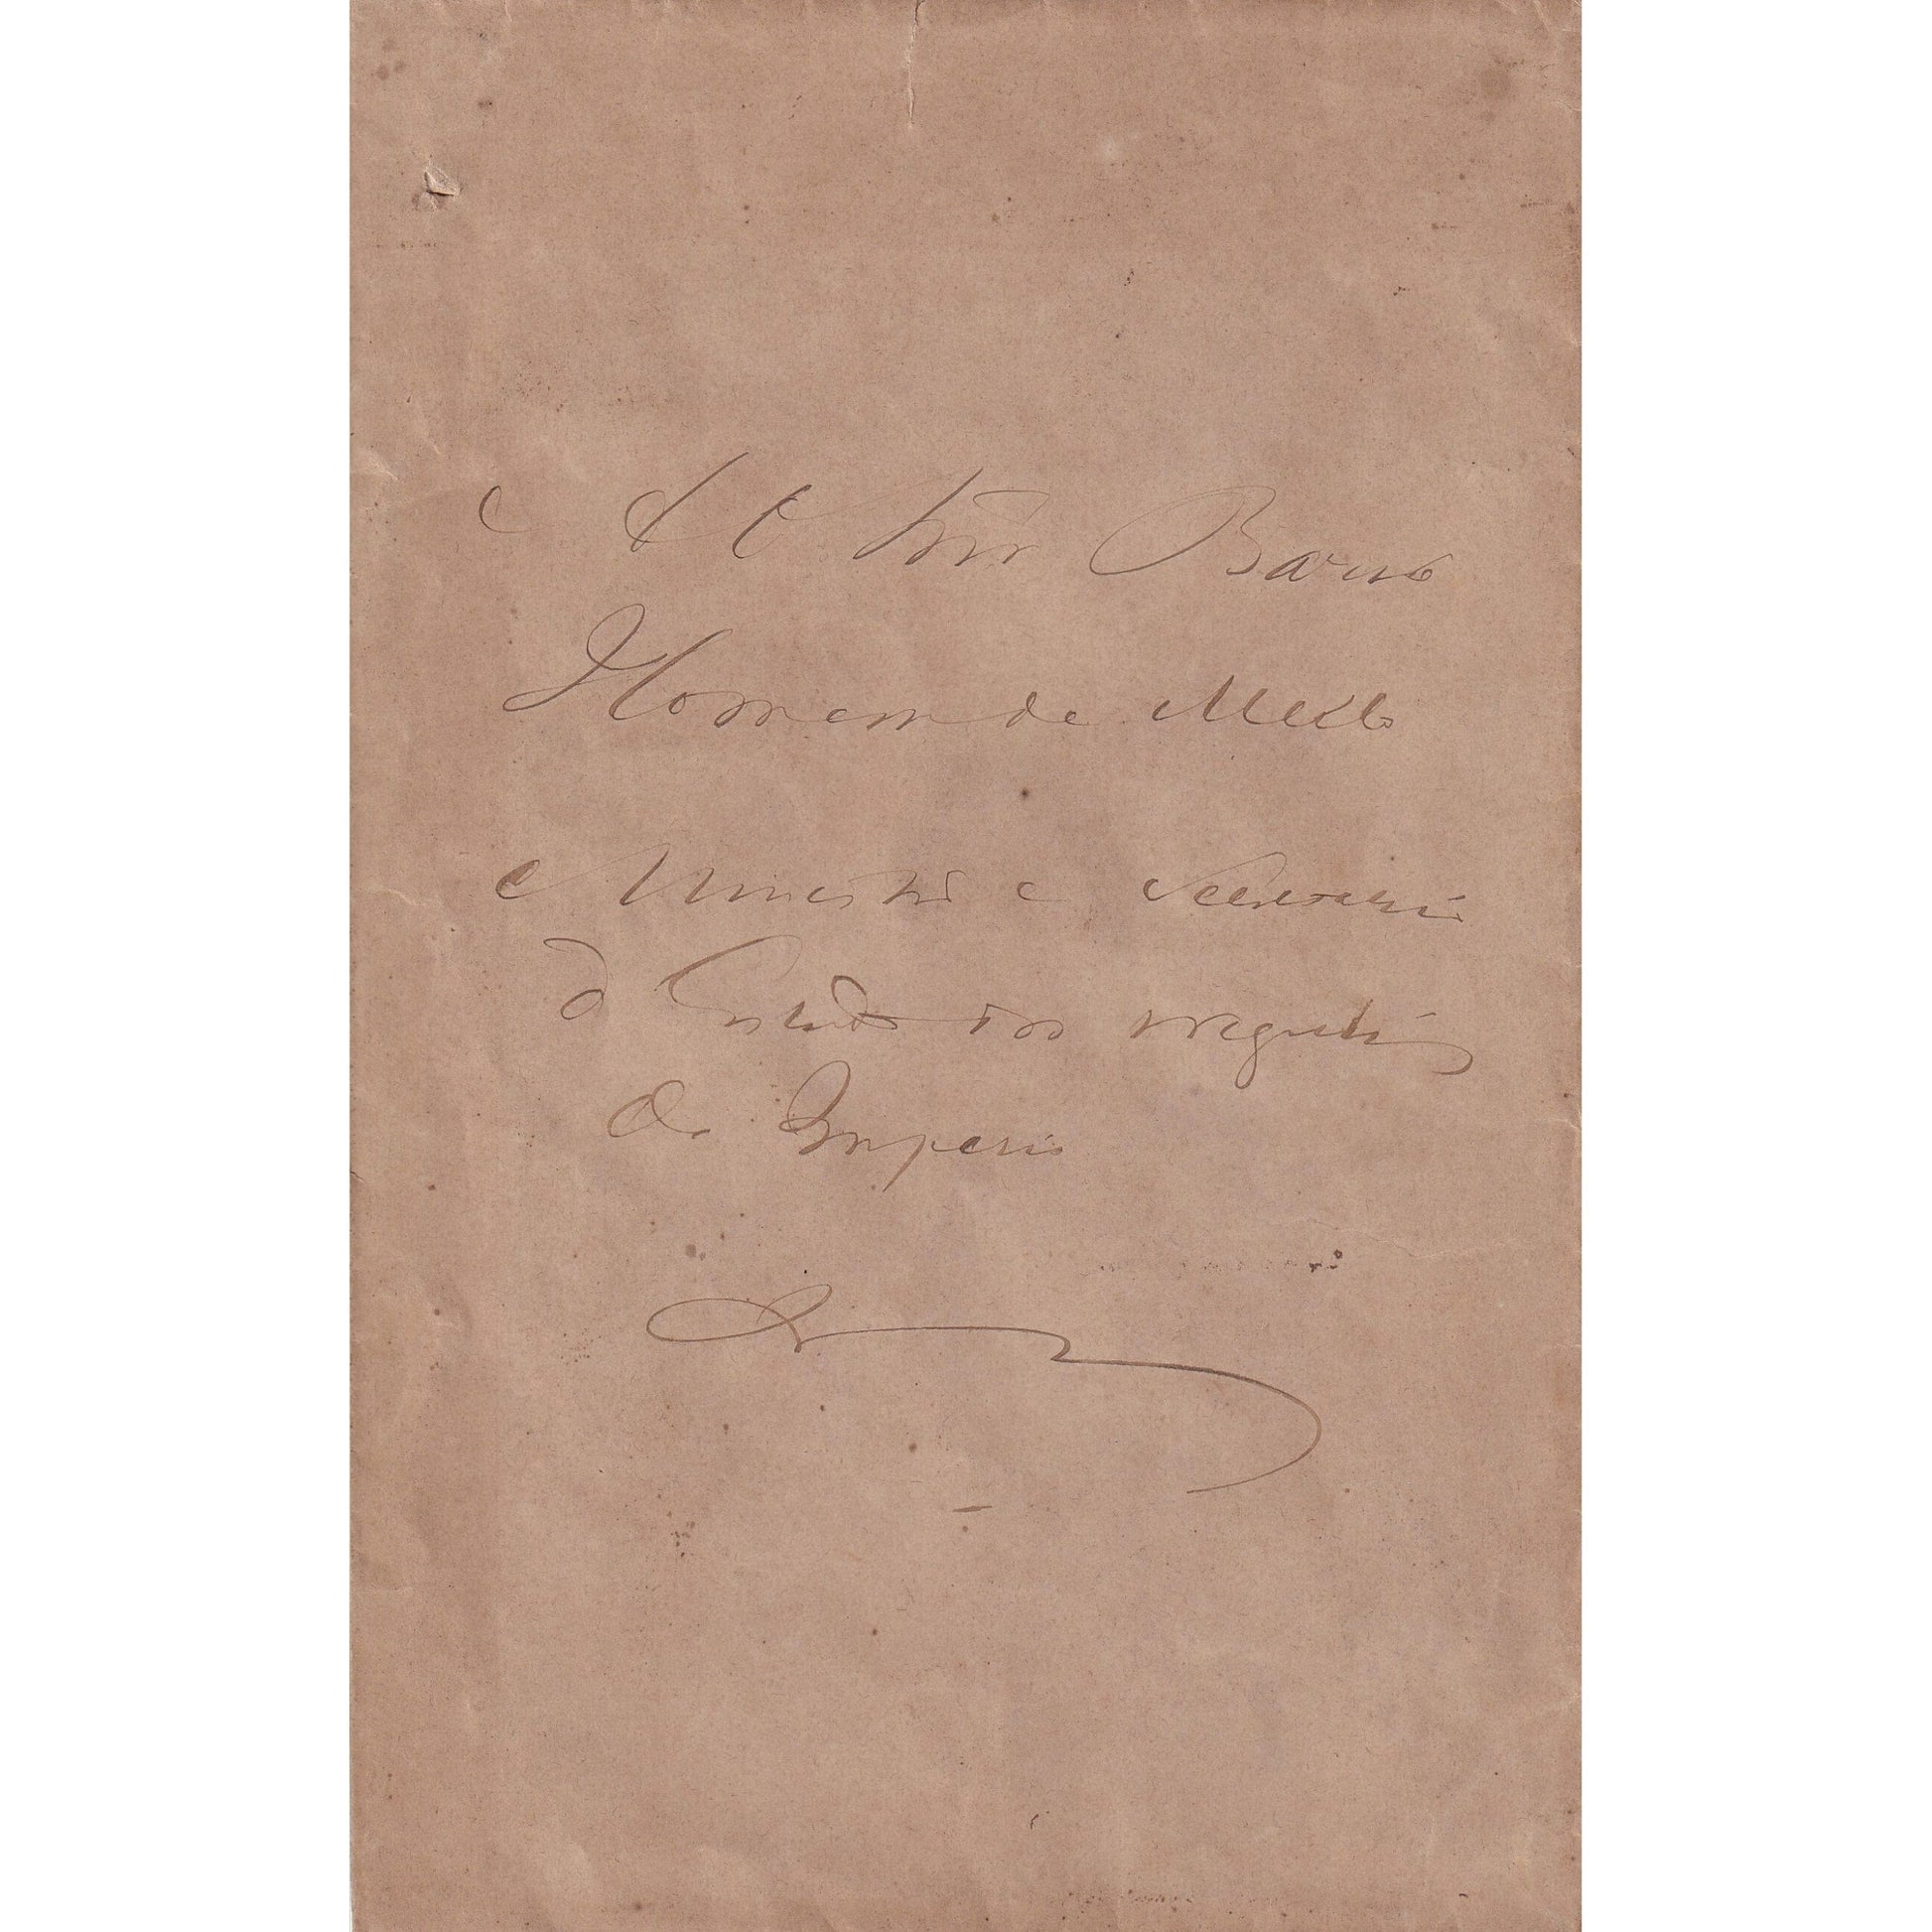 Snr Barão
Homem de Mello
Ministro e Secretario
d Estado dos negocios
do Imperio